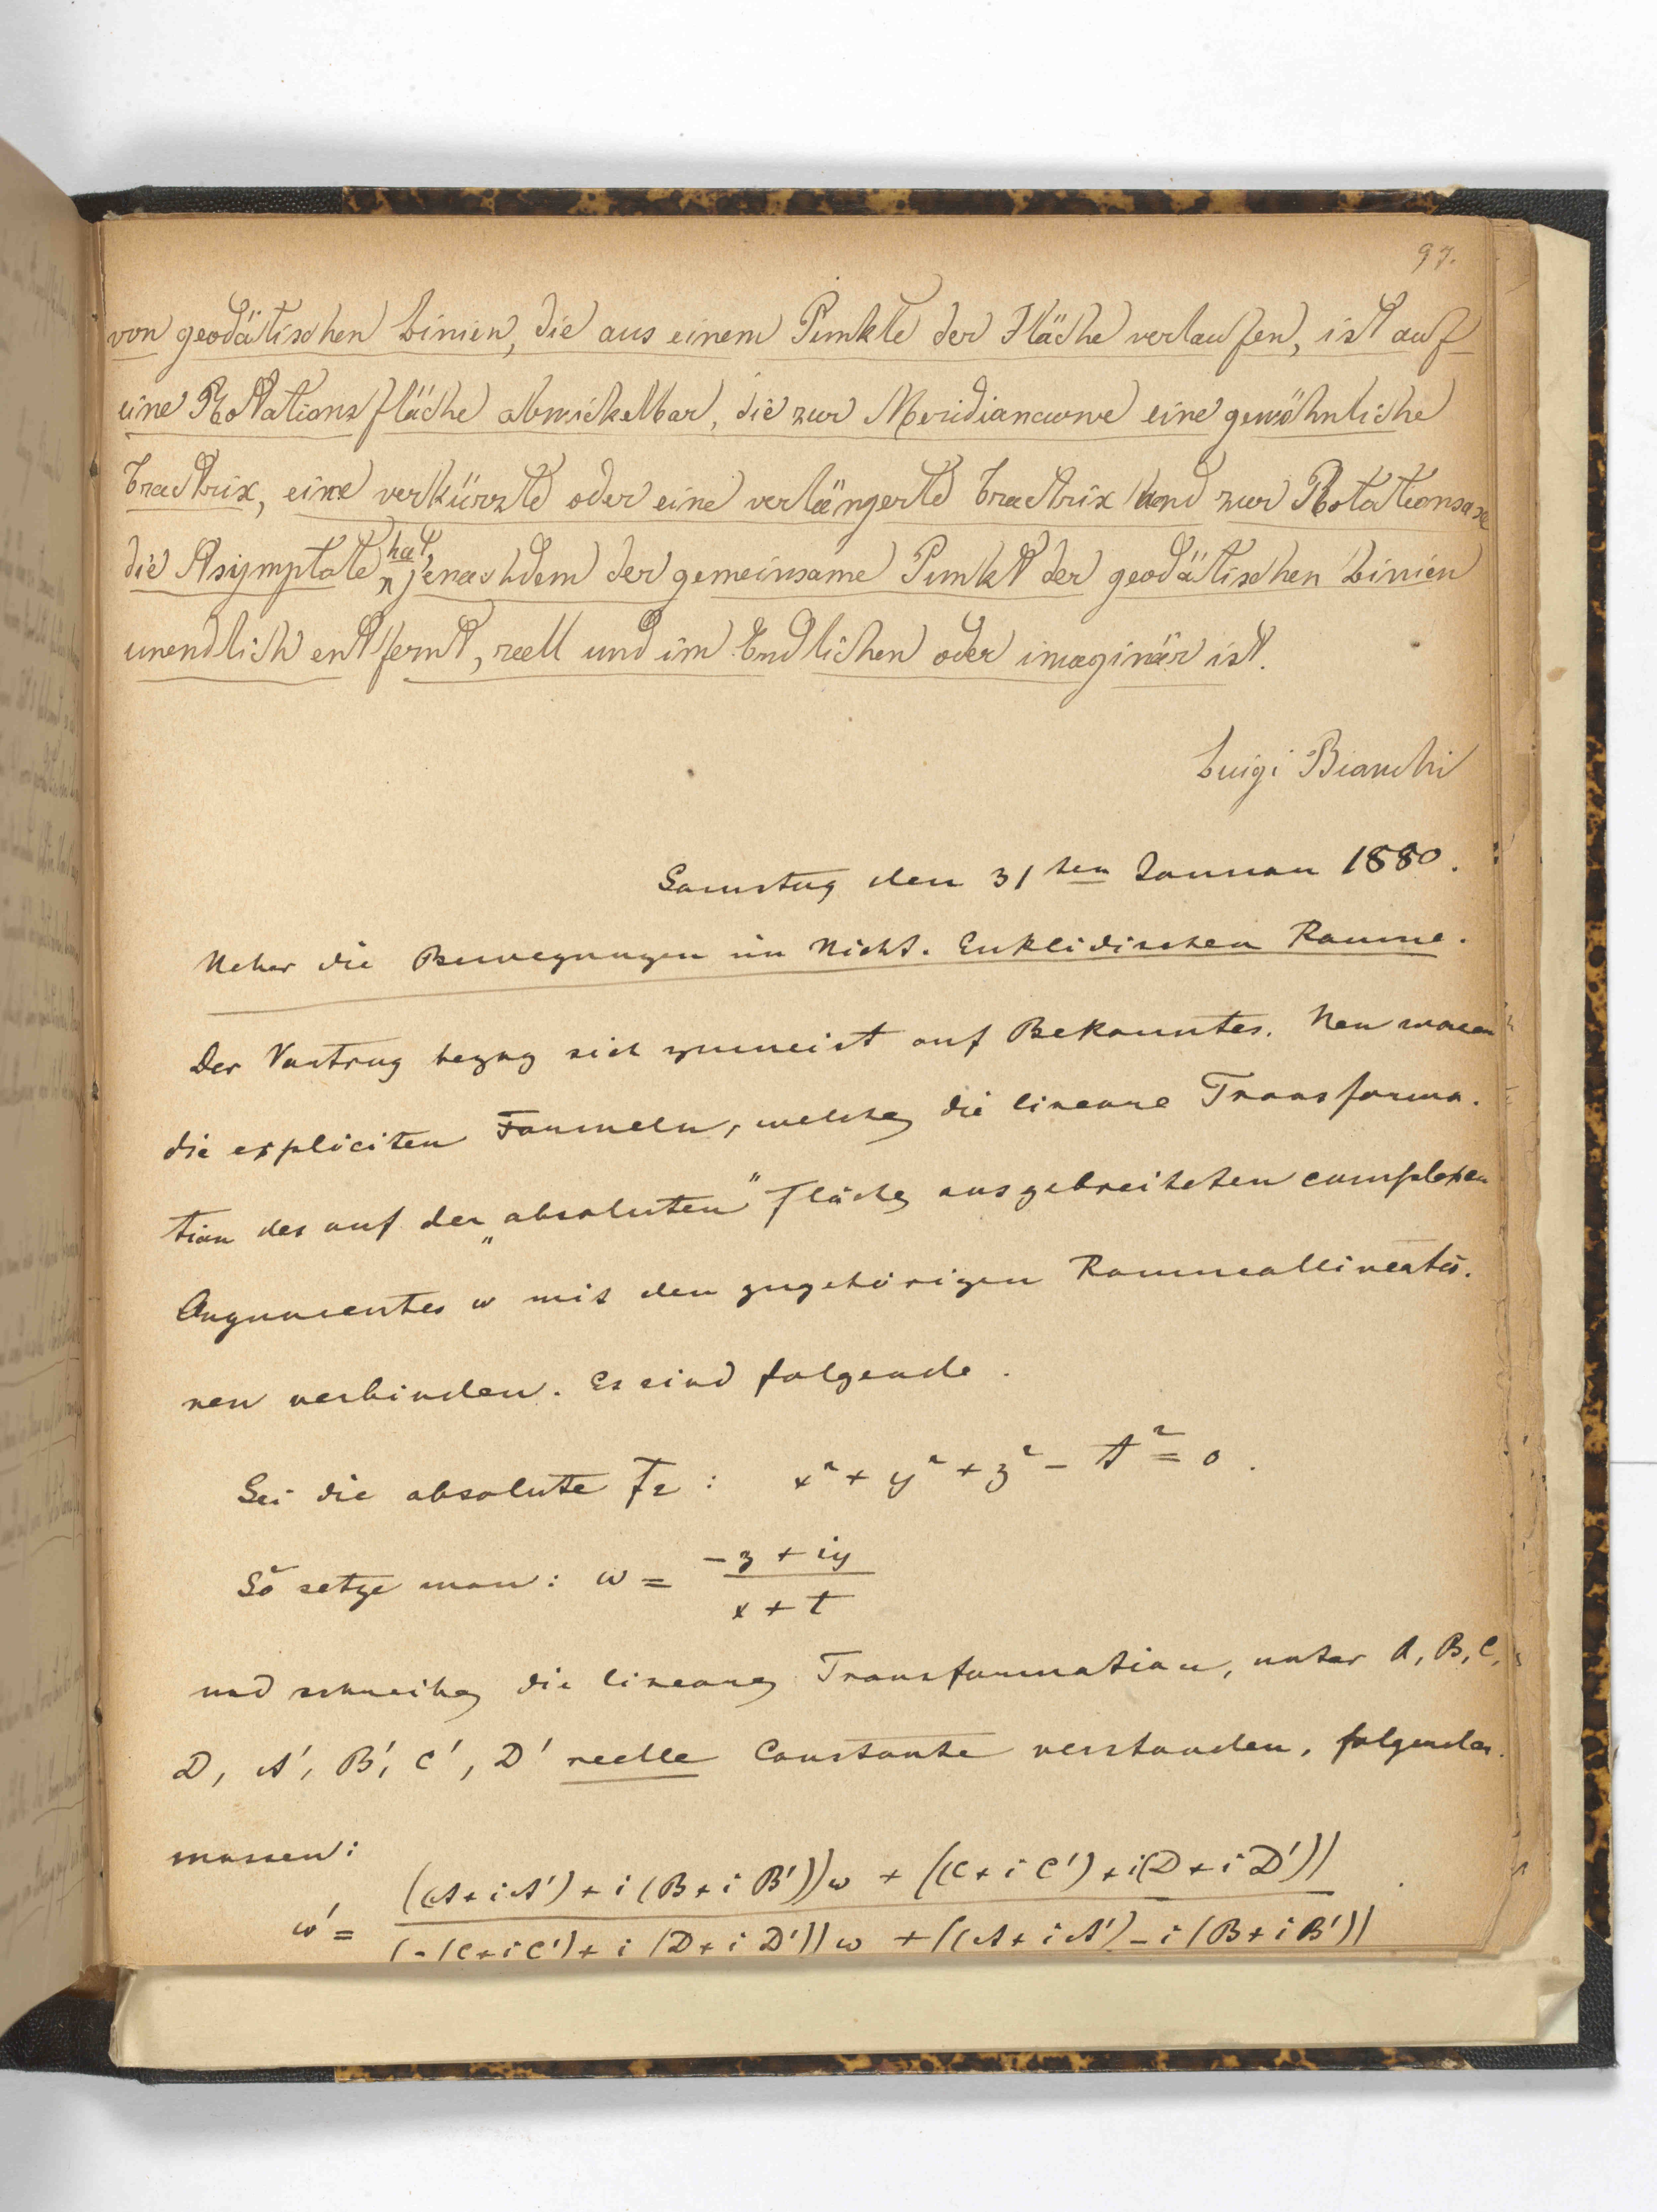 97.
von geodätischen Linien, die aus einem Punkte der Fläche verlaufen, ist auf
eine Rotationsfläche abwickelbar, die zur Meridiancurve eine gewöhnliche
Tractrix, eine verkürzte oder eine verlängerte Tractrix und zur Rotationsaxe
die Asymptote hat jenachdem der gemeinsame Punkt der geodätischen Linien
unendlich entfernt, reell und im Endlichen oder imaginär ist.
Luigi Bianchi
Samstag den 31ten Januar 1880.
Ueber die Bewegungen im Nicht-Euklidischen Raume.
Der Vortrag bezog sich zumeist auf Bekanntes. Neu waren
die expliciten Formeln, welche die lineare Transforma-
tion des auf der „absoluten" Fläche ausgebreiteten complexen
Argumentes w mit den zugehörigen Raumcollineatio-
nen verbinden. Es sind folgende.
Sei die absolute F2: x² + y² + z² - t² = 0.
So setze man: w = (-z + iy)/(x + t)
und schreibe die lineare Transformation, unter A, B, C,
D, A', B', C', D' reelle Constante verstanden, folgender-
massen:
w' = (((A + iA') + i(B + iB'))w + ((C + iC') + i(D + iD')))/((-(C + iC') + i(D + iD'))w + ((A + iA') - i(B + iB')))